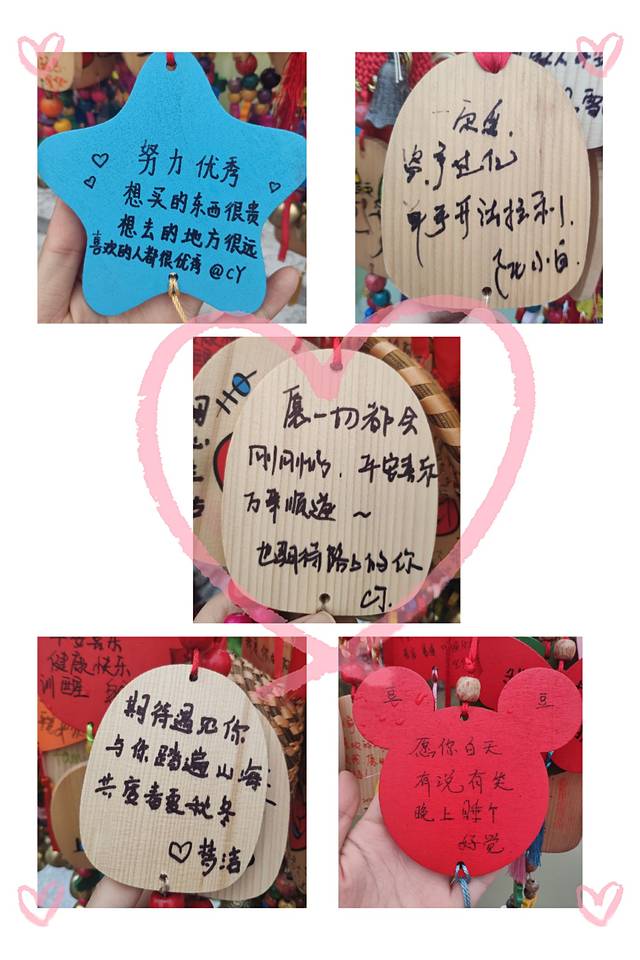 努力优秀
想买的东西很贵
想去的地方很远
喜欢的人都很优秀 @CY
资产过亿
单手开法拉利
小白
愿一切都会
刚刚好,平安喜乐
万事顺遂~
也期待路上的你
CY.
平安喜乐
健康快乐
期待遇见你
与你踏遍山海
共度春夏秋冬
♡梦洁
喜 豆
愿你白天
有说有笑
晚上睡个
好觉